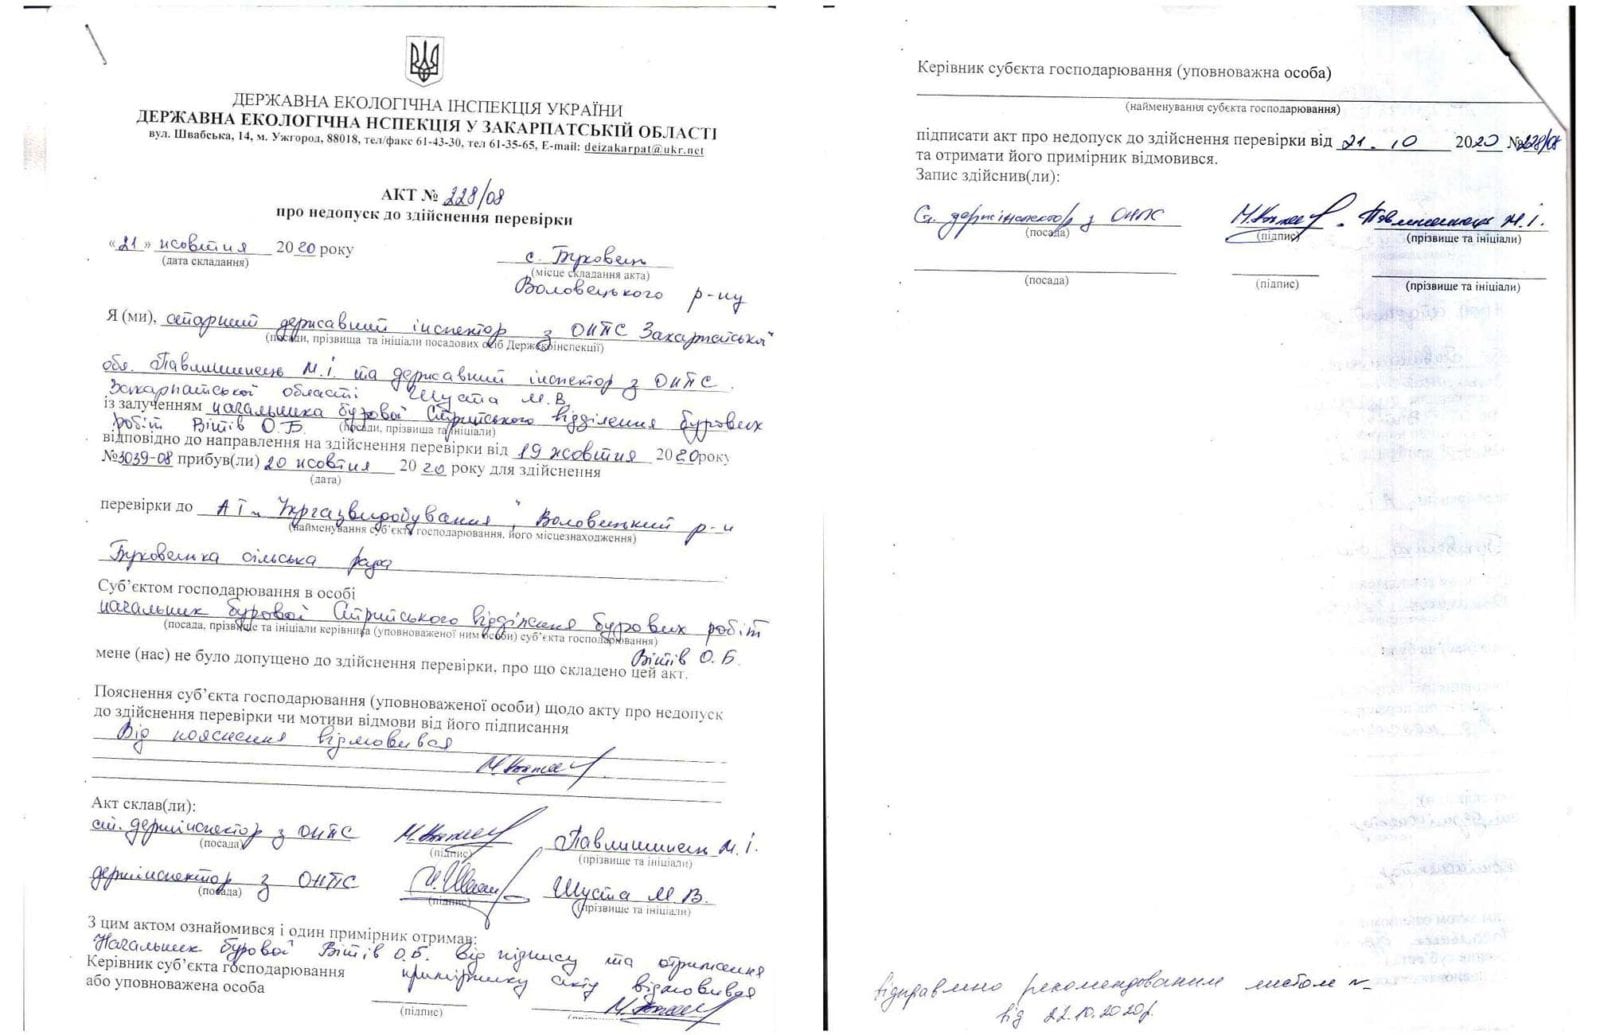 ДЕРЖАВНА ЕКОЛОГІЧНА ІНСПЕКЦІЯ УКРАЇНИ
ДЕРЖАВНА ЕКОЛОГІЧНА НСПЕКЦІЯ У ЗАКАРПАТСЬКІЙ ОБЛАСТІ
вул. Швабська, 14, м. Ужгород, 88018, тел/факс 61-43-30, тел 61-35-65, E-mail: deizakarpat@ukr.net
АКТ № 228/08
про недопуск до здійснення перевірки
«21» жовтня 2020 року
(дата складання)
с. Буковець
(місце складання акта)
Воловецького р-ну
Я (ми), старший державний інспектор з ОНПС Закарпатської
(посади, прізвища та ініціали посадових осіб Держекоінспекції)
обл. Павлишинець М.І. та державний інспектор з ОНПС
Закарпатської області Шуста М.В.
із залученням начальника бурової Стрийського відділення бурових
робіт Вітів О.Б. (посади, прізвища та ініціали)
відповідно до направлення на здійснення перевірки від 19 жовтня 2020 року
№3039-08 прибув(ли) 20 жовтня 2020 року для здійснення
(дата)
перевірки до АТ „Укргазвидобування", Воловецький р-н
(найменування суб'єкта господарювання, його місцезнаходження)
Буковецька сільська рада
Суб'єктом господарювання в особі
начальник бурової Стрийського відділення бурових робіт
(посада, прізвище та ініціали керівника (уповноваженої ним особи) суб'єкта господарювання)
Вітів О.Б.
мене (нас) не було допущено до здійснення перевірки, про що складено цей акт.
Пояснення суб'єкта господарювання (уповноваженої особи) щодо акту про недопуск
до здійснення перевірки чи мотиви відмови від його підписання
Від пояснення відмовився
Акт склав(ли):
ст. держінспектор з ОНПС Павлишинець М.І.
(посада) (підпис) (прізвище та ініціали)
держінспектор з ОНПС Шуста М.В.
(посада) (підпис) (прізвище та ініціали)
З цим актом ознайомився і один примірник отримав:
Начальник бурової Вітів О.Б. від підпису та отримання
Керівник суб'єкта господарювання примірнику акту відмовився
або уповноважена особа
(підпис)
Керівник субєкта господарювання (уповноважна особа)
(найменування субєкта господарювання)
підписати акт про недопуск до здійснення перевірки від 21.10 2020 №228/08
та отримати його примірник відмовився.
Запис здійснив(ли):
Ст. держінспектор з ОНПС Павлишинець М.І.
(посада) (підпис) (прізвище та ініціали)
(посада) (підпис) (прізвище та ініціали)
Відправлено рекомендованим листом №
від 22.10.2020р.